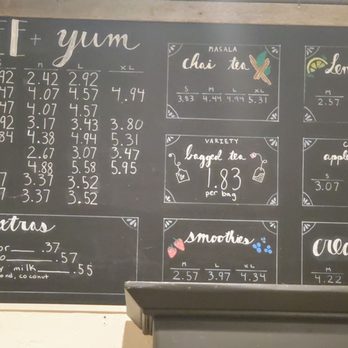 + yum
S M L XL
92 2.42 2.92
47 4.07 4.57 4.94
47 4.07 4.57
92 3.17 3.43 3.80
84 4.38 4.94 5.31
2.67 3.07 3.47
4.88 5.58 5.95
3.37 3.52
3.37 3.52
xtras
.37
.57
milk .55
coconut
MASALA
chai tea
S M L XL
3.83 4.44 4.94 5.31
VARIETY
bagged tea
1.83
per bag
smoothies
M L XL
2.57 3.97 4.34
Lem
M
2.57
apple
S
3.07
crea
M
4.22